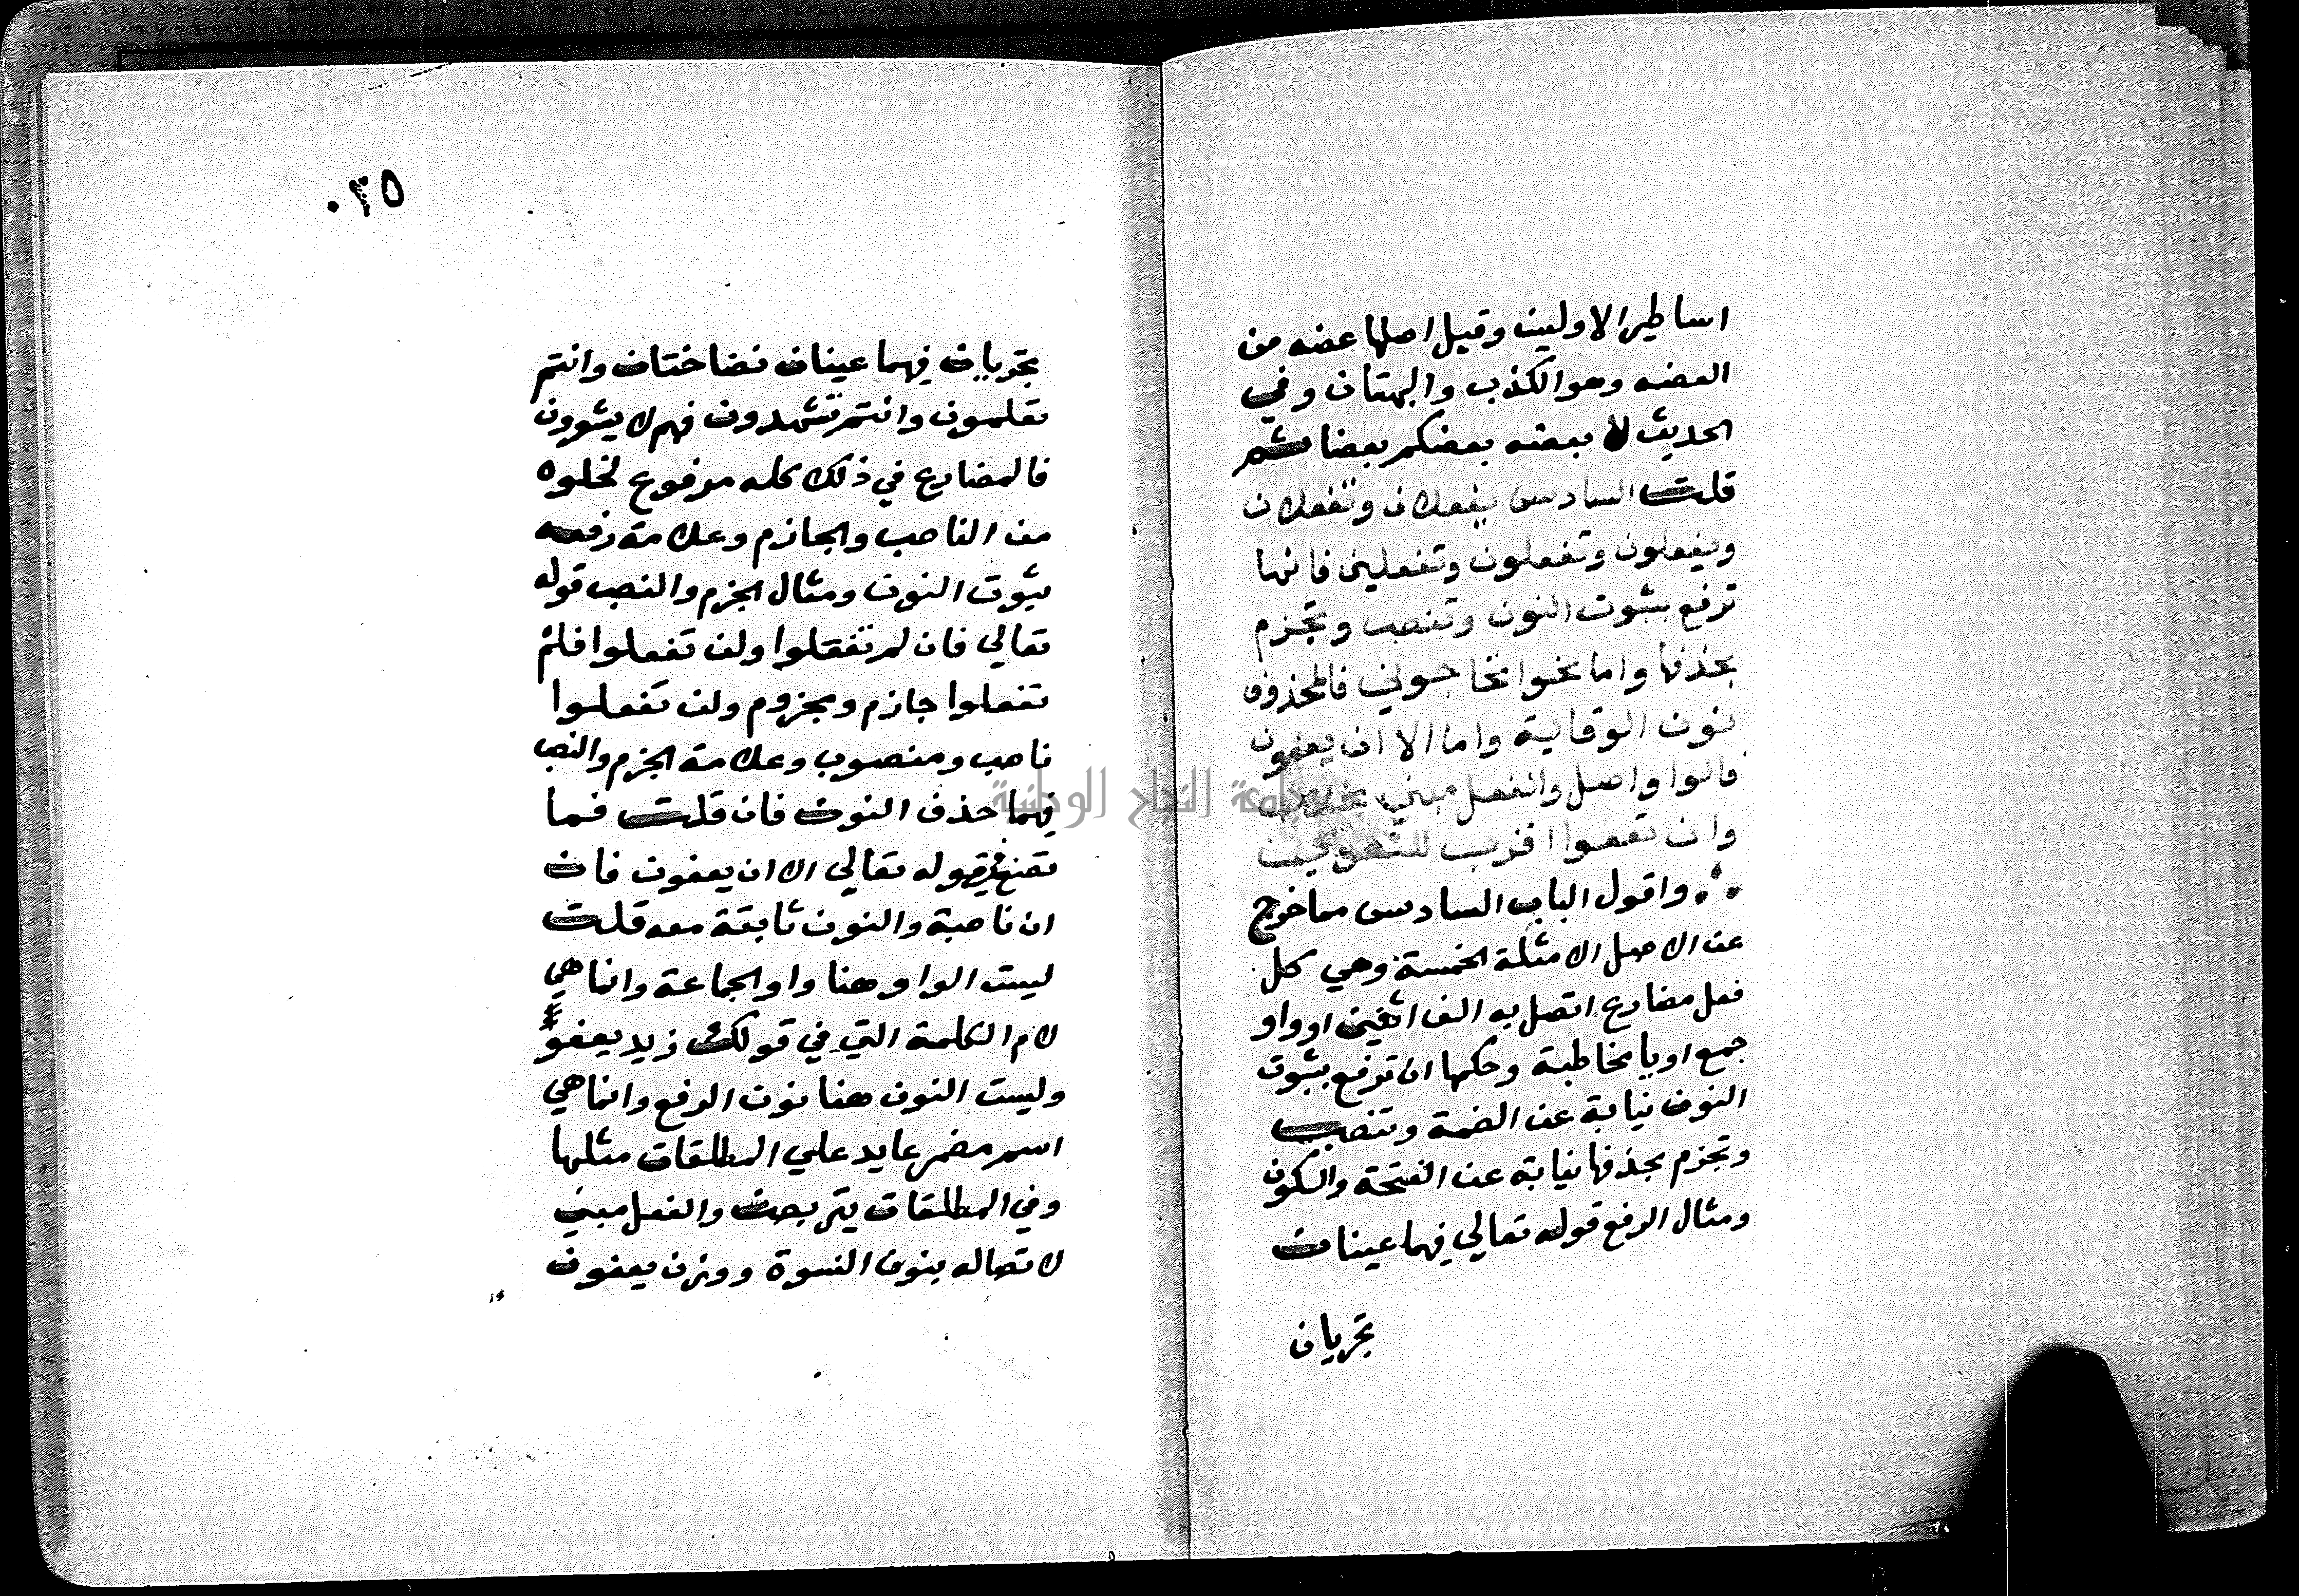 اساطير الاولين وقيل اصلها عضه من
العضه وهو الكذب والبهتان وفي
الحديث لا يعضه بعضكم بعضا ثم
قلت السادس يفعلان وتفعلان
ويفعلون وتفعلون وتفعلين فانها
ترفع بثبوت النون وتنصب وتجزم
بحذفها واما نحوا تحاجوني فالمحذوف
نون الوقاية واما الا ان يعفون
فالواو اصل والفعل مبني بخلاف
وان تعفوا اقرب للتقوي
واقول الباب السادس مما خرج
عن الاصل الامثلة الخمسة وهي كل
فعل مضارع اتصل به الف اثنين او واو
جمع او يا مخاطبة وحكمها ان ترفع بثبوت
النون نيابة عن الضمة وتنصب
وتجزم بحذفها نيابة عن الفتحة والسكون
ومثال الرفع قوله تعالي فيهما عينان
تجريان
٠٢٥
تجريان فيهما عينان نضاختان وانتم
تعلمون وانتم تشهدون فهم لا يشعرون
فالمضارع في ذلك كله مرفوع لخلوه
من الناصب والجازم وعلامة رفعه
ثبوت النون ومثال الجزم والنصب قوله
تعالي فان لم تفعلوا ولن تفعلوا فلم
تفعلوا جازم ومجزوم ولن تفعلوا
ناصب ومنصوب وعلامة الجزم والنصب
فيهما حذف النون فان قلت فما
تصنع في قوله تعالي الا ان يعفون فان
ان ناصبة والنون ثابتة معه قلت
ليست الواو هنا واو الجماعة وانما هي
لام الكلمة التي في قولك زيد يعفو
وليست النون هنا نون الرفع وانما هي
اسم مضمر عايد علي المطلقات مثلها
وفي المطلقات يتربصن والفعل مبني
لاتصاله بنون النسوة ووزن يعفون
جامعة النجاح الوطنية